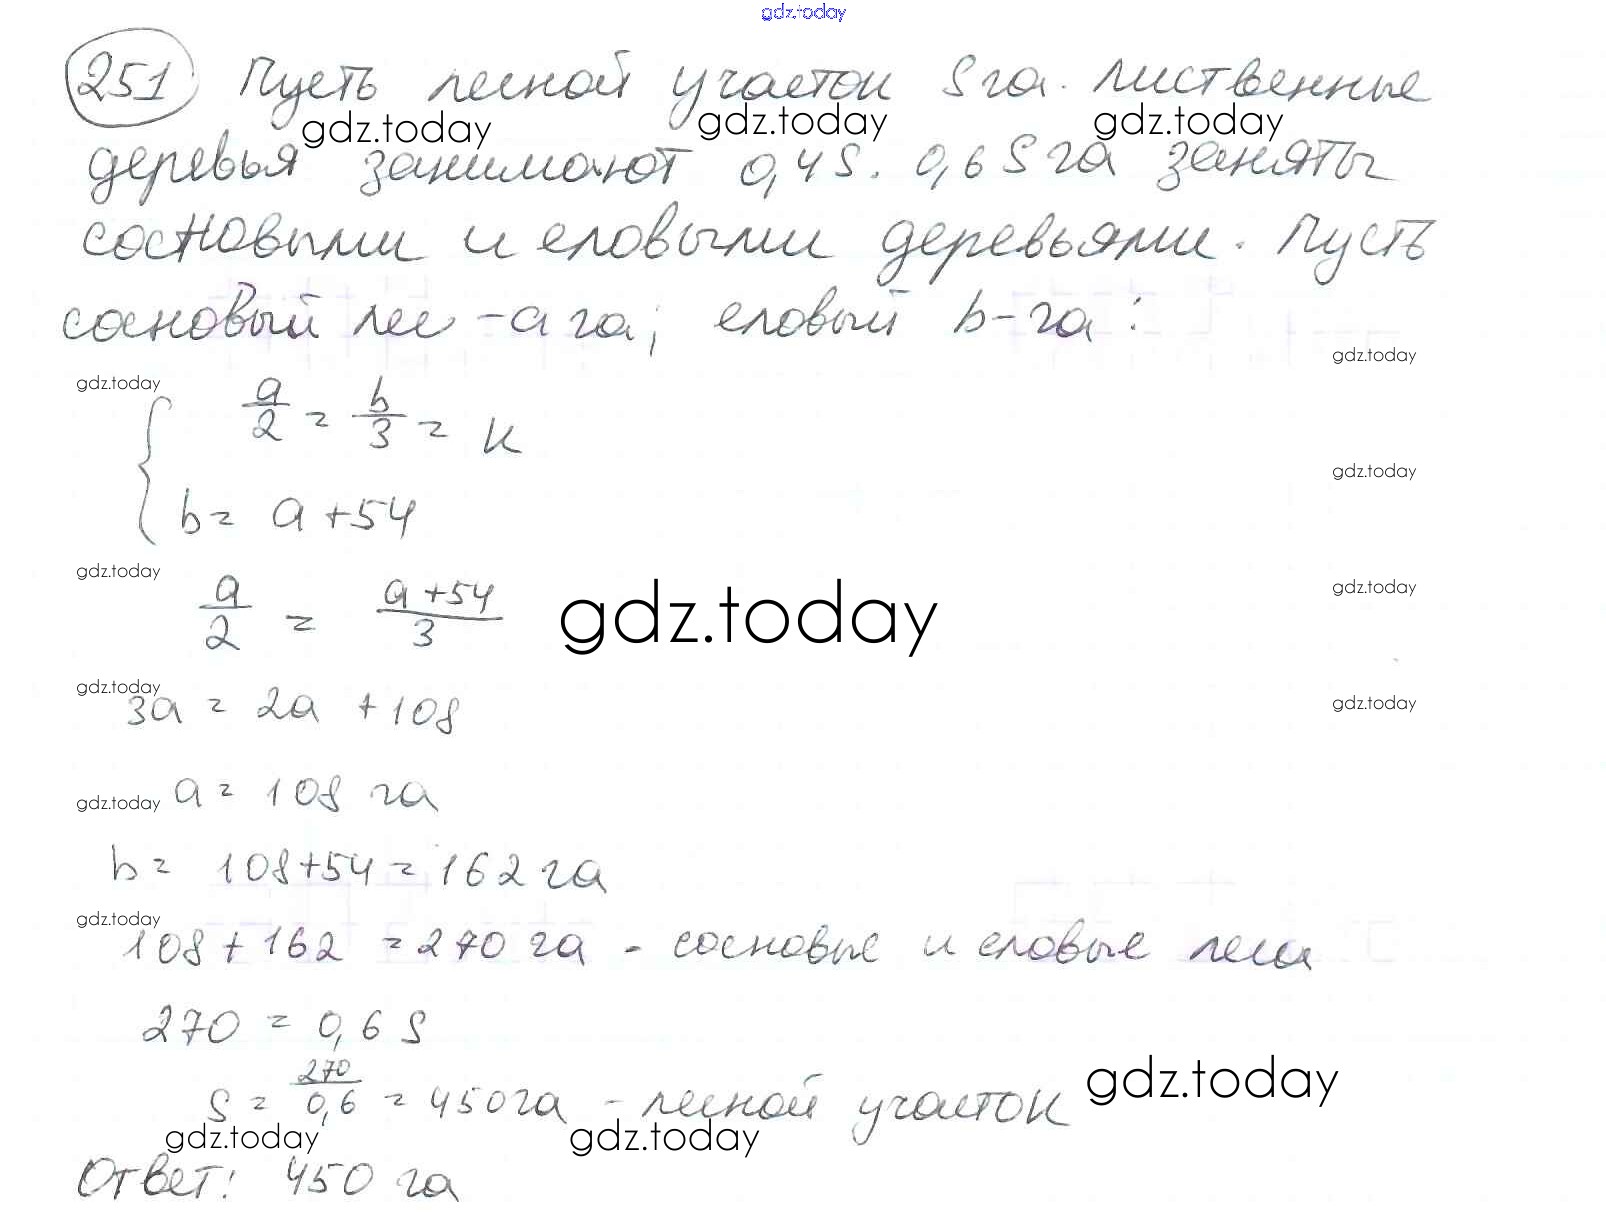 gdz.today
251 Пусть лесной участок S га. Лиственные
gdz.today gdz.today gdz.today
деревья занимают 0,4S. 0,6 S га заняты
сосновыми и еловыми деревьями. Пусть
сосновый лес - a га; еловый b - га:
gdz.today
gdz.today
a/2 = b/3 = к
gdz.today
b = a + 54
gdz.today
gdz.today
a/2 = (a + 54)/3
gdz.today
gdz.today
gdz.today
3a = 2a + 108
gdz.today a = 108 га
b = 108 + 54 = 162 га
gdz.today
108 + 162 = 270 га - сосновые и еловые леса
270 = 0,6 S
S = 270/0,6 = 450 га - лесной участок
gdz.today
gdz.today gdz.today
Ответ: 450 га